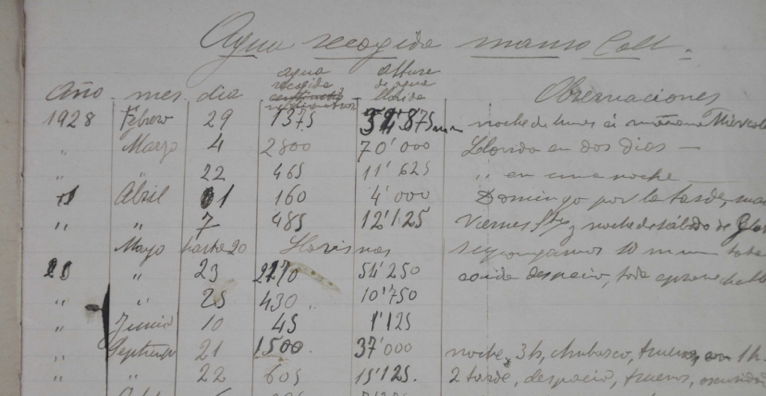 Agua recogida manso Coll.
Año mes día agua recogida altura de agua llovida Observaciones
1928 Febrero 29 1375 34'875 mm noche de lunes á mañana Miércole
" Marzo 4 2800 70'000 Llovido en dos días —
" " 22 465 11'625 " en una noche —
" Abril 1 160 4'000 Domingo por la tarde,
" " 7 485 12'125 Viernes Sto y noche de sábado de Glo
Mayo hasta 20 Lloviznas 10 mm
28 " 23 2270 54'250 caida despacio, toda
" " 25 430 10'750
" Junio 10 45 1'125
" Septbre 21 1500 37'000 noche, 3h, chubasco, truenos, 1h.
" " 22 605 15'125. 2 tarde, despacio, truenos,